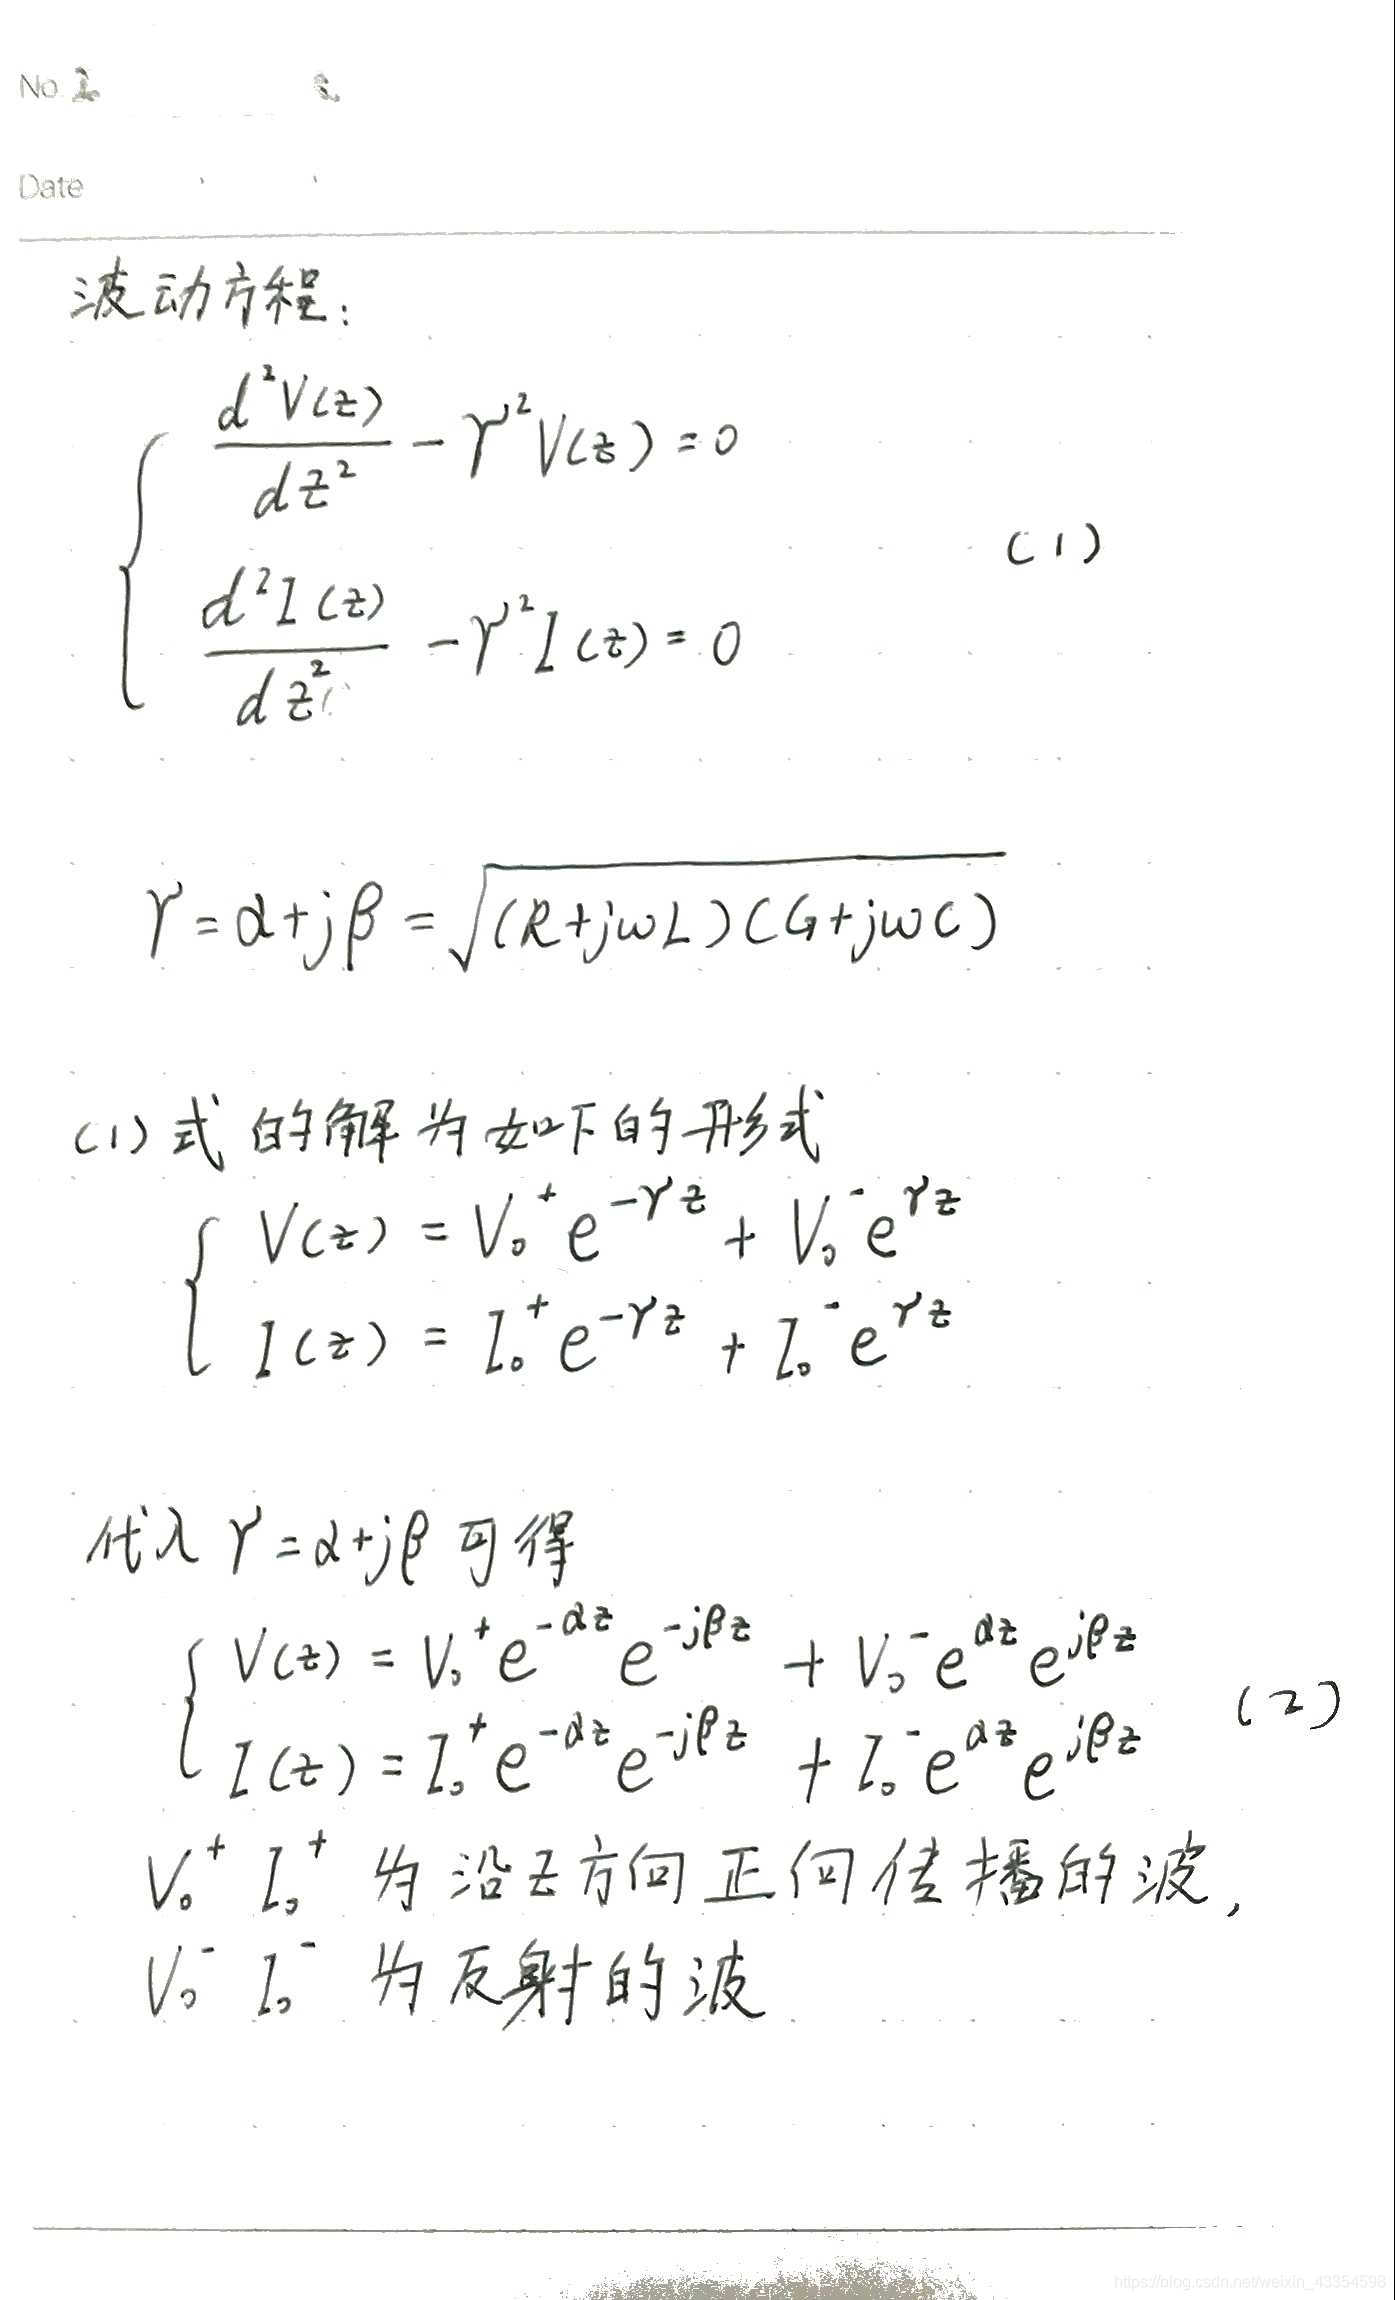 No.
Date
波动方程:
d²V(z)/dz² - γ²V(z) = 0
(1)
d²I(z)/dz² - γ²I(z) = 0
γ = α+jβ = √((R+jωL)(G+jωC))
(1)式的解为如下的形式
V(z) = V₀⁺e^(-γz) + V₀⁻e^(γz)
I(z) = I₀⁺e^(-γz) + I₀⁻e^(γz)
代入 γ=α+jβ 可得
V(z) = V₀⁺e^(-αz)e^(-jβz) + V₀⁻e^(αz)e^(jβz)
(2)
I(z) = I₀⁺e^(-αz)e^(-jβz) + I₀⁻e^(αz)e^(jβz)
V₀⁺ I₀⁺ 为沿z方向正向传播的波,
V₀⁻ I₀⁻ 为反射的波
https://blog.csdn.net/weixin_43354598